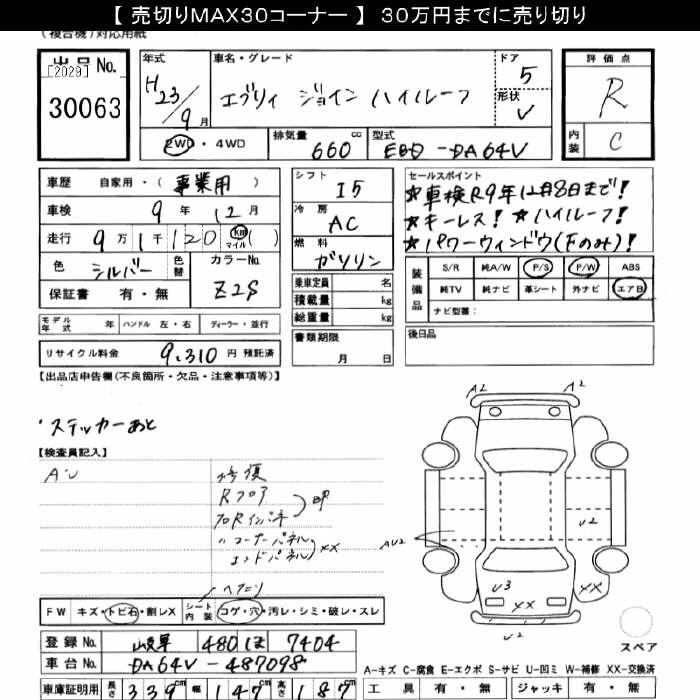 【 売切りMAX30コーナー 】 30万円までに売り切り
(複合機)対応用紙
出品No. [2029]
30063
年式 H23/9月
車名・グレード エブリィ ジョイン ハイルーフ
ドア 5
形状 V
評価点 R
内装 C
2WD・4WD
排気量 660 cc
型式 EBD-DA64V
車歴 自家用・(事業用)
車検 9年12月
走行 9万1千120 km マイル ( )
色 シルバー
色替
カラーNo. Z2S
保証書 有・無
シフト I5
冷房 AC
燃料 ガソリン
乗車定員 名
積載量 kg
総重量 kg
書類期限 月 日
セールスポイント
☆車検R9年12月8日まで!
☆キーレス! ☆ハイルーフ!
☆パワーウィンドウ(Fのみ)!
装備品 S/R 純A/W P/S P/W ABS
純TV 純ナビ 革シート 外ナビ エアB
ナビ型番:
後日品
モデル年式 年 ハンドル 左・右 ディーラー・並行
リサイクル料金 9,310 円 預託済
【出品店申告欄(不良箇所・欠品・注意事項等)】
・ステッカーあと
【検査員記入】
AU
修復
Rフロア
Rインパネ
〃コーナーパネル
エンドパネル XX
A2 A2
AU2
U2
U3 XX XX
U2
FW キズ・トビ石・割レX シート内装 コゲ・穴・汚レ・シミ・破レ・スレ
登録No. 岐阜 480 ほ 7404
車台No. DA64V-487098
車庫証明用 長さ 339cm 幅 147cm 高さ 187cm
スペア
A-キズ C-腐食 E-エクボ S-サビ U-凹ミ W-補修 XX-交換済
工具 有・無 ジャッキ 有・無